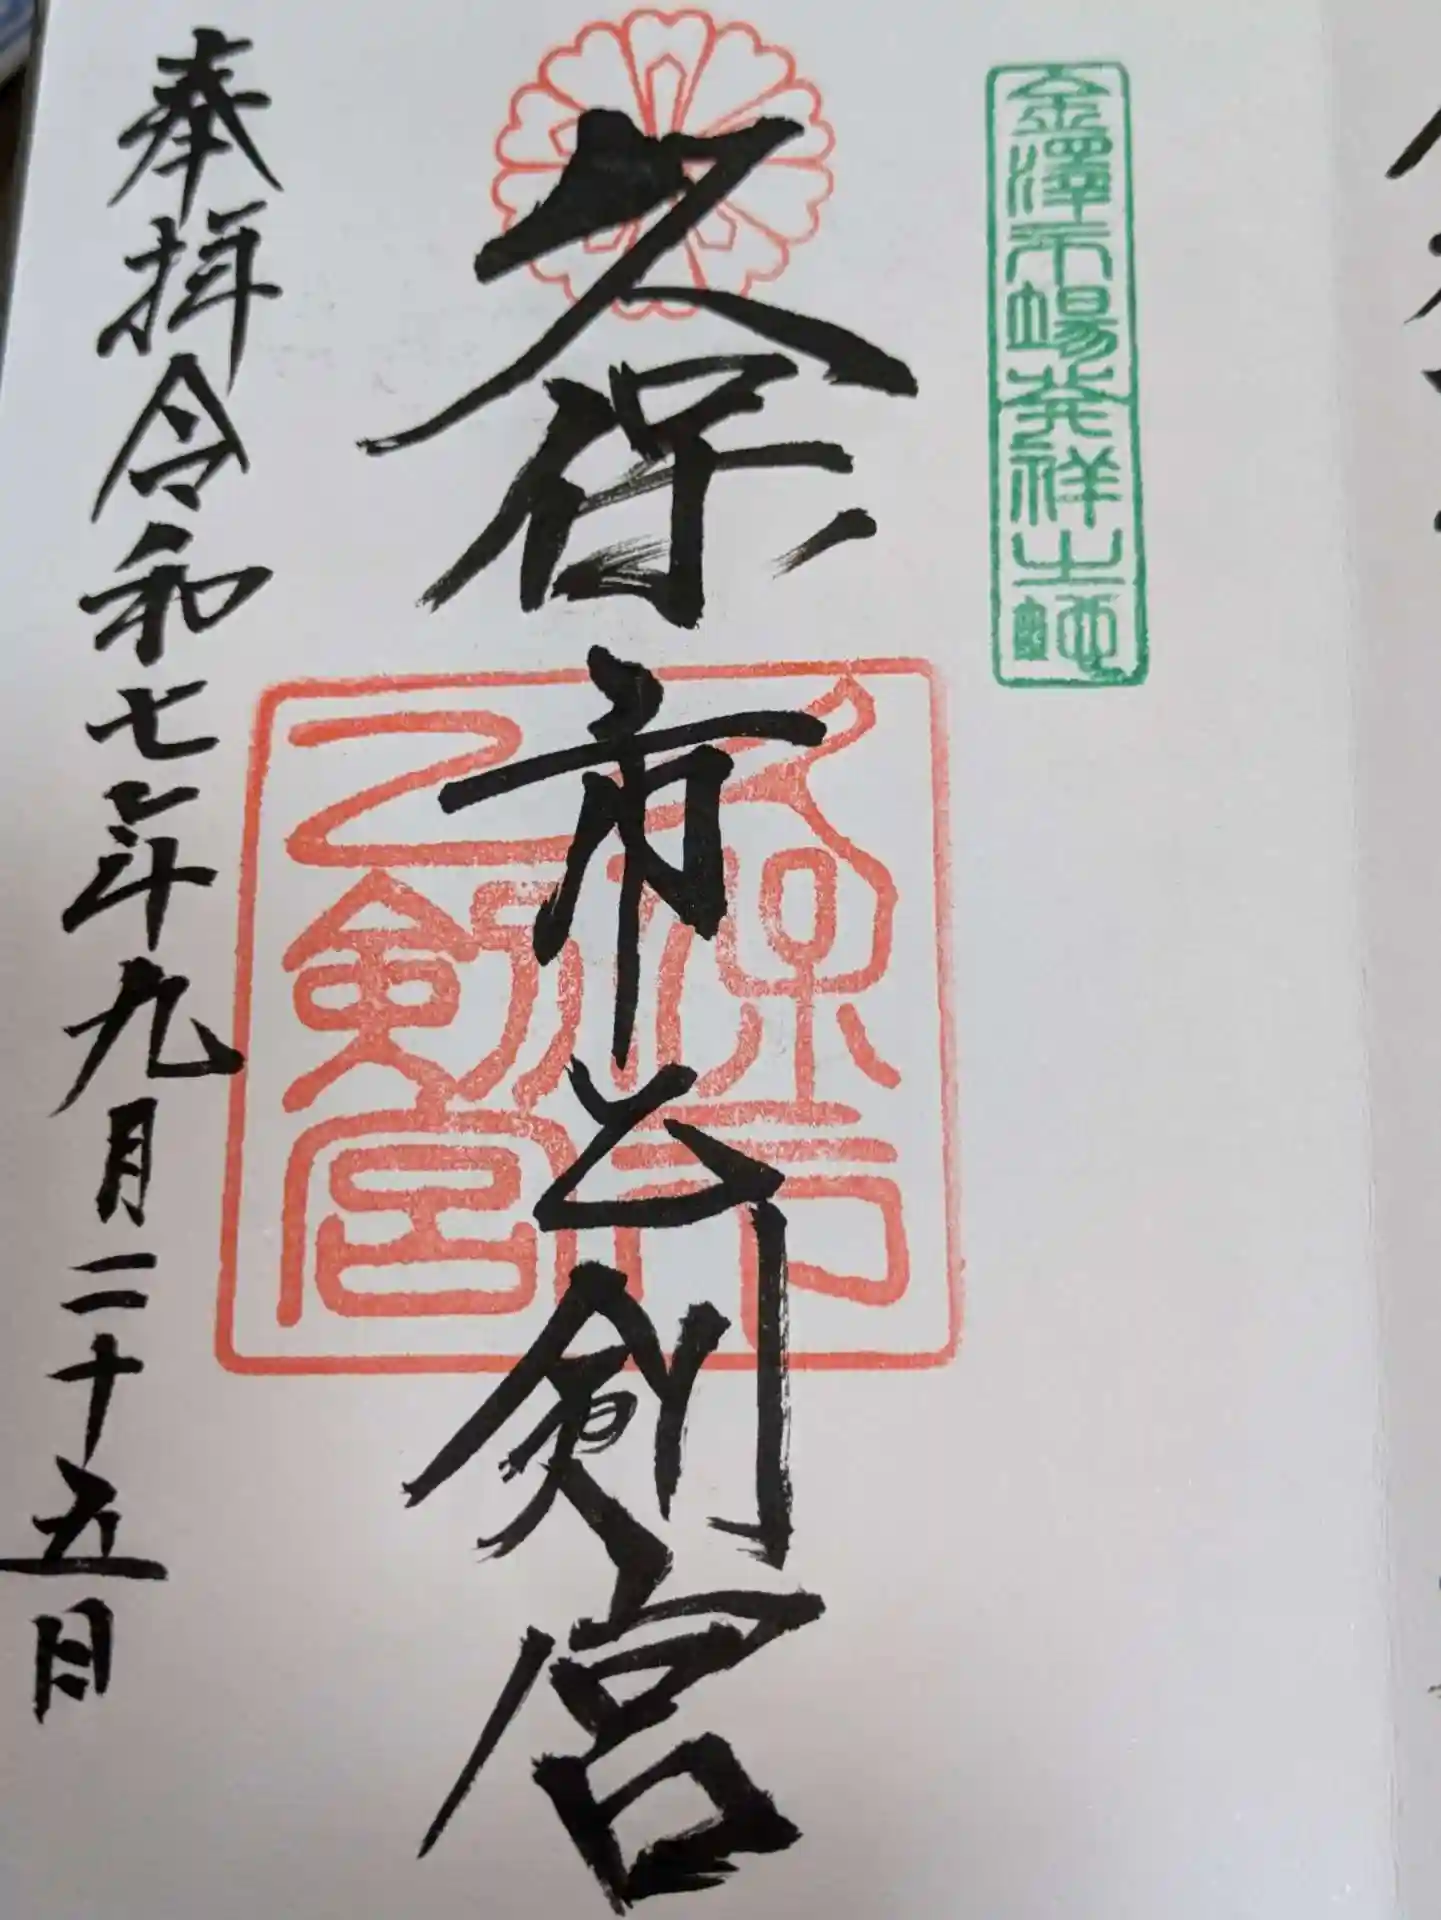 金澤市場発祥之地
久保市乙剣宮
久保市乙剣宮
奉拝令和七年九月二十五日